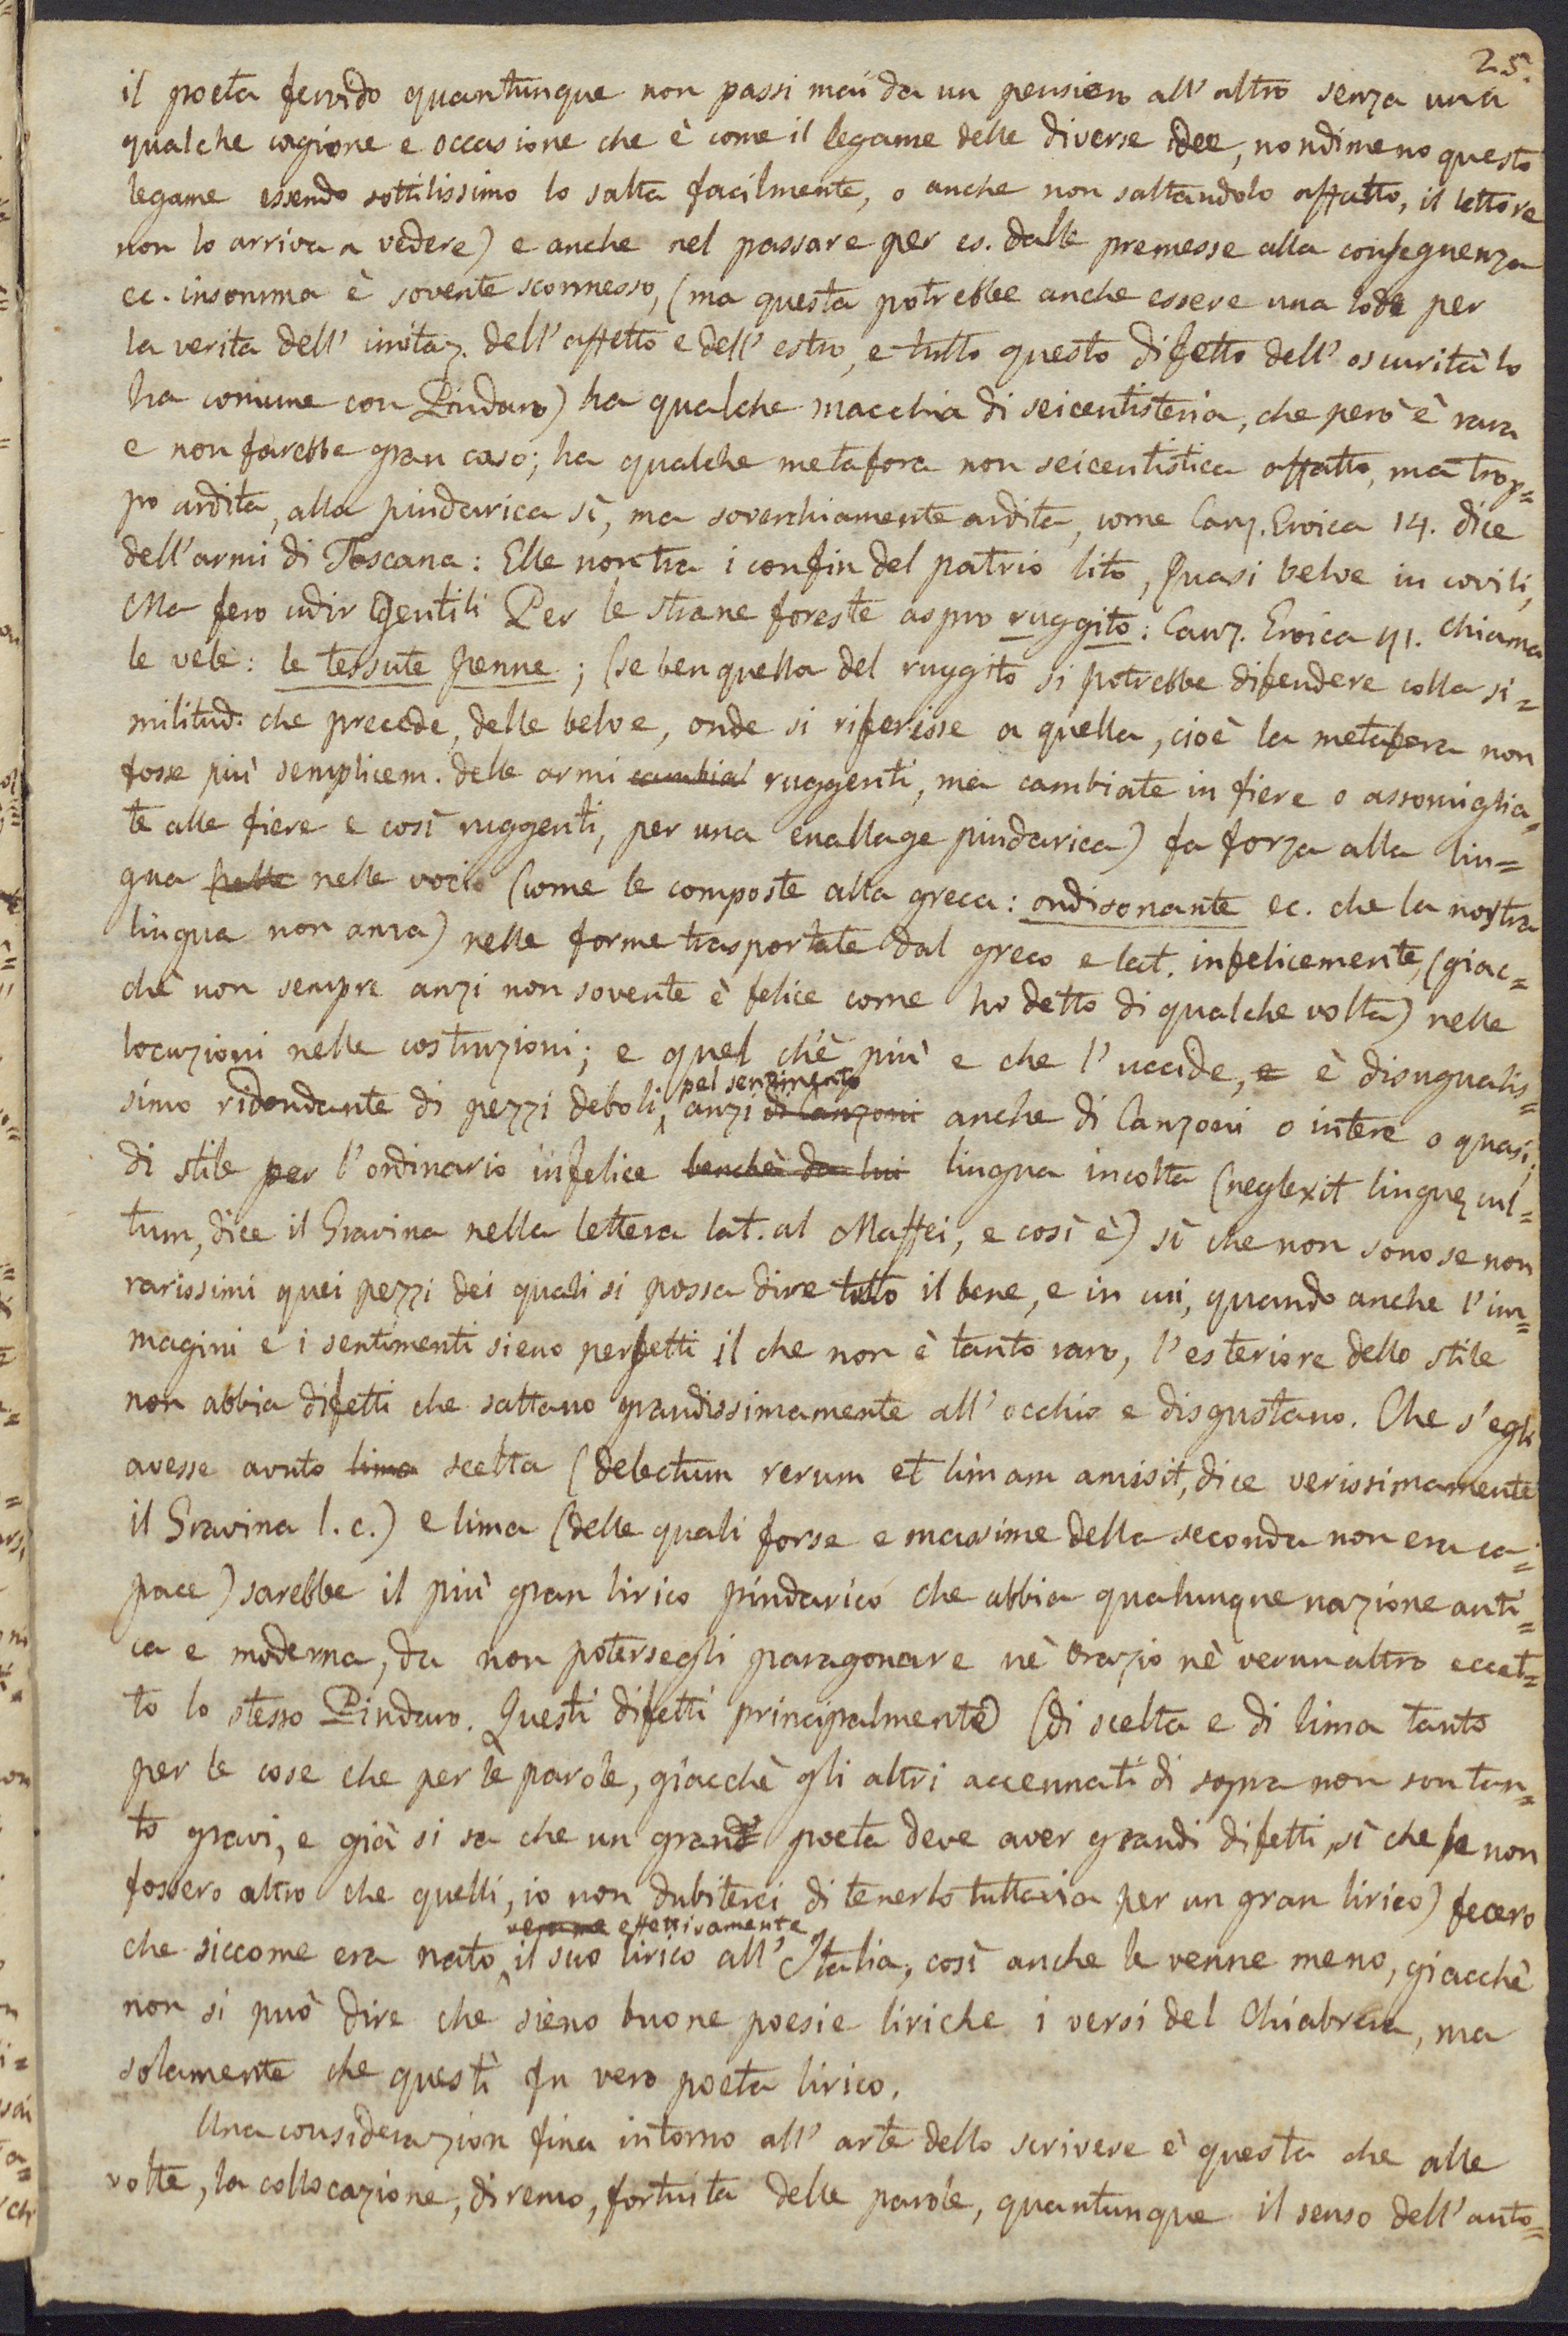 25.
il poeta fervido quantunque non passi mai da un pensiero all'altro senza una
qualche cagione e occasione che è come il legame delle diverse idee, nondimeno questo
legame essendo sottilissimo lo salta facilmente, o anche non saltandolo affatto, il lettore
non lo arriva a vedere) e anche nel passare per es. dalle premesse alla conseguenza
ec. insomma è sovente sconnesso, (ma questa potrebbe anche essere una lode per
la verità dell'imitaz. dell'affetto e dell'estro, e tutto questo difetto dell'oscurità lo
ha comune con Pindaro) ha qualche macchia di seicentisteria, che però è rara
e non farebbe gran caso; ha qualche metafora non seicentistica affatto, ma trop=
po ardita, alla pindarica sì, ma soverchiamente ardita, come Canz. Eroica 14. dice
dell'armi di Toscana: Elle non tra i confin del patrio lito, Quasi belve in covili,
Ma fero udir Gentili Per le strane foreste aspro ruggito: Canz. Eroica 41. chiama
le vele: le tessute penne; (se ben quella del ruggito si potrebbe difendere colla si=
militud. che precede, delle belve, onde si riferisse a quella, cioè la metafora non
fosse più semplicem. delle armi cambia ruggenti, ma cambiate in fiere o assomiglia=
te alle fiere e così ruggenti, per una enallage pindarica) fa forza alla lin=
gua nelle nelle voci (come le composte alla greca: ondisonante ec. che la nostra
lingua non ama) nelle forme trasportate dal greco e lat. infelicemente, (giac=
chè non sempre anzi non sovente è felice come ho detto di qualche volta) nelle
locuzioni nelle costruzioni; e quel ch'è più e che l'uccide, e è disuguaglis=
simo ridondante di pezzi deboli, pel sentimento anzi di Canzoni anche di Canzoni o intere o quasi,
di stile per l'ordinario infelice benchè da lui lingua incolta (neglexit linguę cul=
tum, dice il Gravina nella lettera lat. al Maffei, e così è) sì che non sono se non
rarissimi quei pezzi dei quali si possa dire tutto il bene, e in cui, quando anche l'im=
magini e i sentimenti sieno perfetti il che non è tanto raro, l'esteriore dello stile
non abbia difetti che saltano grandissimamente all'occhio e disgustano. Che s'egli
avesse avuto lima scelta (delectum rerum et limam amisit, dice verissimamente
il Gravina l. c.) e lima (delle quali forse e massime della seconda non era ca=
pace) sarebbe il più gran lirico pindarico che abbia qualunque nazione anti=
ca e moderna, da non potersegli paragonare nè Orazio nè verun altro eccet=
to lo stesso Pindaro. Questi difetti principalmente (di scelta e di lima tanto
per le cose che per le parole, giacchè gli altri accennati di sopra non son tan=
to gravi, e già si sa che un grand poeta deve aver grandi difetti, sì che se non
fossero altro che quelli, io non dubiterei di tenerlo tuttavia per un gran lirico) fecero
che siccome era nato effettivamente il suo lirico all'Italia, così anche le venne meno, giacchè
non si può dire che sieno buone poesie liriche i versi del Chiabrera, ma
solamente che questi fu vero poeta lirico.
Una considerazion fina intorno all'arte dello scrivere è questa che alle
volte, la collocazione, diremo, fortuita delle parole, quantunque il senso dell'auto=